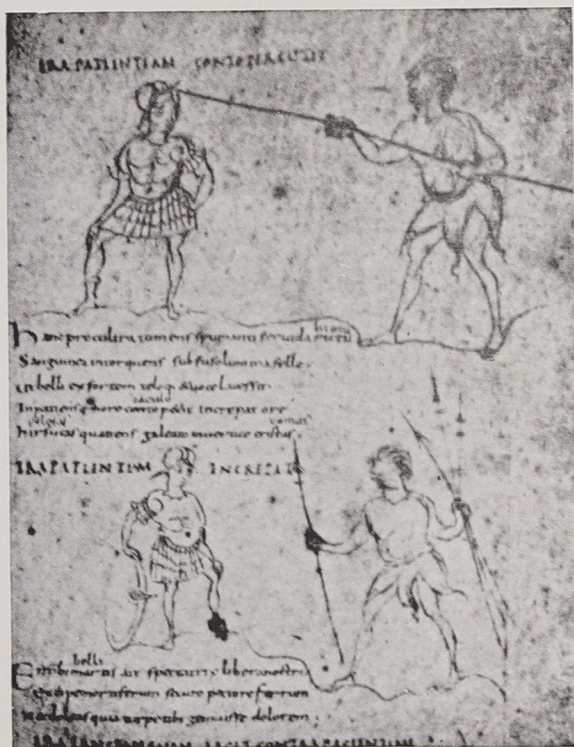 IRA PATIENTIAM CONTO PERCUTIT
Hanc procul ira tumens spumanti fervida rictu
Sanguinea intorquens subfuso lumina felle.
ut belli exsortem teloq; &voce lacessit.
Inpatiensq; more conto petit increpat ore
hirsutas quatiens galeato invertice cristas.
IRA PATIENTIAM INCREPAT
belli
En tibi martis ait spectatrix libera nostri
Excipe mortiferum securo pectore ferrum
nec doleas quia turpe tibi gemuisse dolorem;
CONTRA PACIENTIAM